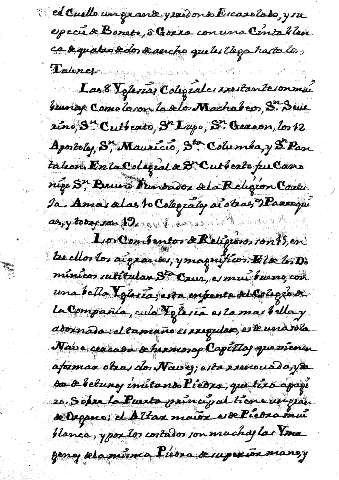 el Cuello un grande, y redondo Escarolado, y su
especie de Bonete, ò Gorra con una Cinta blan
ca de quatro dedos de ancho que les llega hasta los
Talones.
Las 8 Yglesias Colegiales restantes son mui
buenas, como lo son la de los Machabeos, Sn. Seve
rino, Sn. Cutberto, Sn. Lupo, Sn. Gereon, los 12
Apostoles, Sn. Mauricio, Sta. Columba, y Sn. Pan
taleon. En la Colegial de Sn. Cutberto fue Cano
nigo Sn. Bruno Fundador de la Religion Cartu
ja. A mas de las 10 Colegiales ai otras, 9 Parroqui
as, y todas son 19.
Los Combentos de Religiosos son 15, en
tre ellos los ai grandes, y magnificos. El de los Do
minicos su titular Sta. Cruz, es mui bueno con
una bella Yglesia; esta enfrente del Colegio de
la Compañia, cuia Yglesia es la mas bella y
adornada: el tamaño es regular, es de una sola
Nave cercada de hermosas Capillas que vienen
a formar otras dos Naves; esta renovada, y
de belunes imitando Piedra, que hizo
Sobre la Puerta principal tiene un gran
de Organo; el Altar maior es de Piedra mui
blanca, y por los costados son muchas las Yma
genes de la misma Piedra de superior mano, y